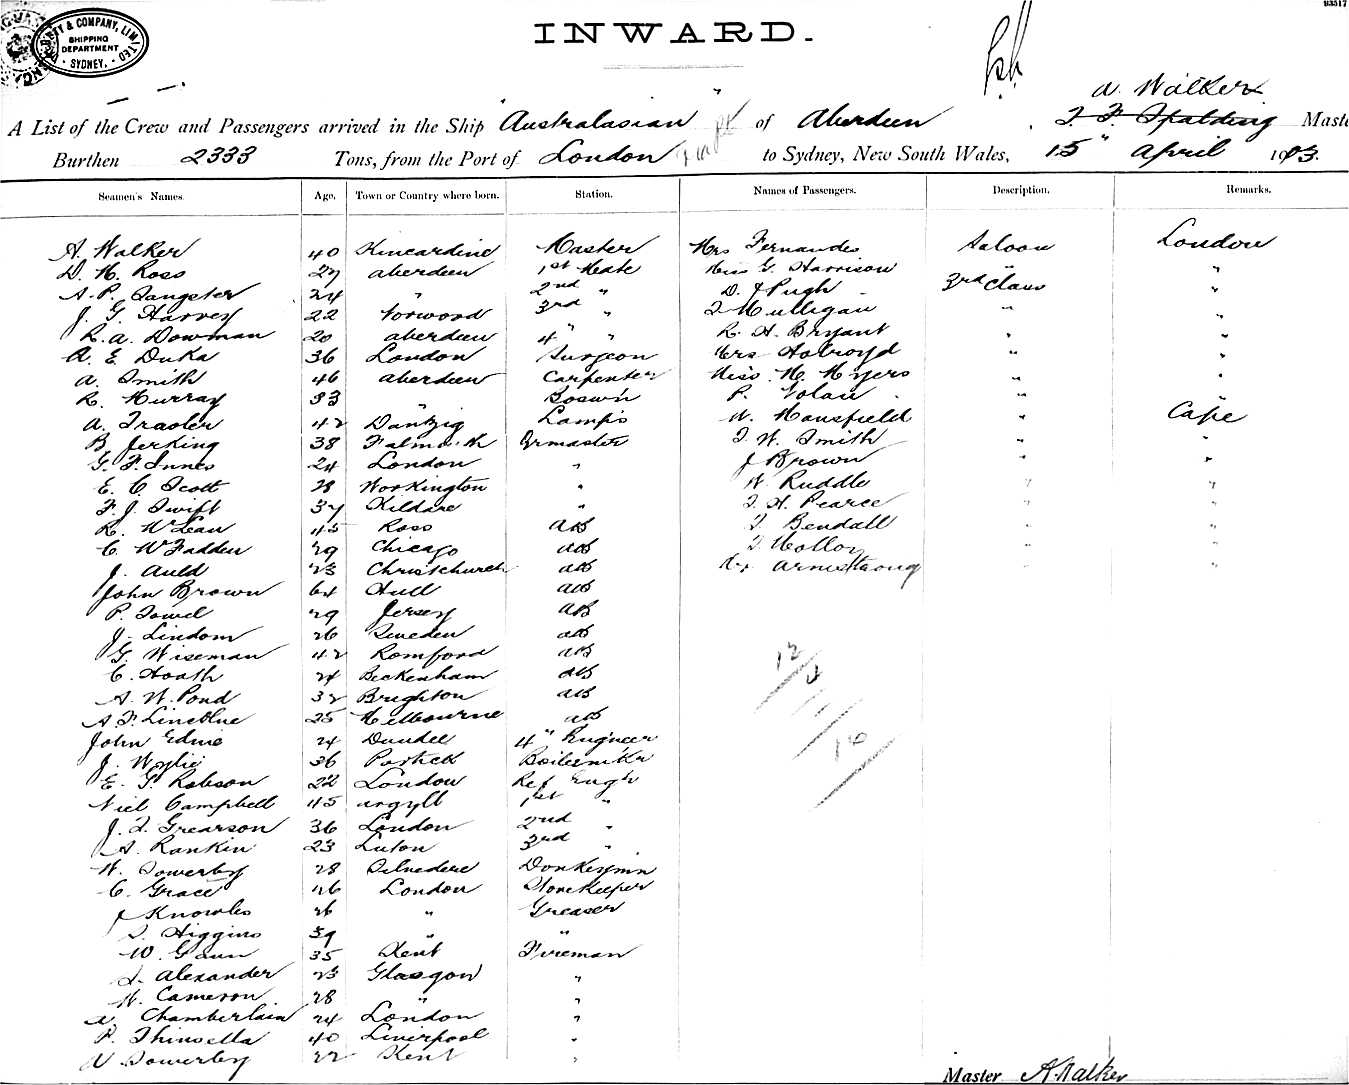 93517
DALGETY & COMPANY, LIMITED
SHIPPING
DEPARTMENT
SYDNEY.
INWARD.
A. Walker
A List of the Crew and Passengers arrived in the Ship "Australasian" of Aberdeen, T. F. Spalding Maste
Burthen 2333 Tons, from the Port of London to Sydney, New South Wales, 15" April 1903.
Seamen's Names. Age. Town or Country where born. Station. Names of Passengers. Description. Remarks.
A. Walker 40 Kincardine Master Mrs Fernandes Saloon London
D. M. Ross 27 Aberdeen 1st Mate Miss G. Harrison " "
A. P. Sangster 24 " 2nd " D. J Pugh 3rd Class "
J. G. Harvey 22 Norwood 3rd " T Mulligan " "
R. A. Dowman 20 Aberdeen 4" " R. H. Bryant " "
A. E. Duka 36 London Surgeon Mrs Holroyd " "
A. Smith 46 Aberdeen Carpenter Miss M. Myers " "
R. Murray 33 " Boswn P. " "
A. 42 Dantzig Lamps W. Mansfield " Cape
B Jerking 38 Falmouth Qrmaster T. W. Smith " "
G. F. Innes 24 London " J Brown " "
E. C. Scott 28 Workington " W. Ruddle " "
F. J. Swift 37 Kildare " T. H. Pearce " "
R. McLean 45 Ross AB T. Bendall " "
C. McFadden 29 Chicago AB T. Molloy " "
J. Auld 23 Christchurch AB Armstrong " "
John Brown 64 Hull AB
P. Towel 29 Jersey AB
J. Lindom 26 Sweden AB
G. Wiseman 42 Romford AB
C. Hoath 24 Beckenham AB
A. W. Pond 32 Brighton AB
A. F. Lineblue 25 Melbourne AB
John Edmie 24 Dundee 4" Engineer
J. Wylie 36 Partick Boilermkr
E. G. Robson 22 London Ref Engr
Niel Campbell 45 Argyll 1st "
J. T. Grearson 36 London 2nd "
A. Rankin 23 Luton 3rd "
W. Sowerby 28 Belvedere Donkeymn
C. Grace 46 London Storekeeper
J Knowles 26 " Greaser
T. Higgins 39 " "
W. Gaun 35 Kent Fireman
J. Alexander 23 Glasgow "
W. Cameron 28 " "
A. Chamberlain 24 London "
P. Thinsella 40 Liverpool "
W. Sowerby 22 Kent "
12
4
16
Master A. Walker